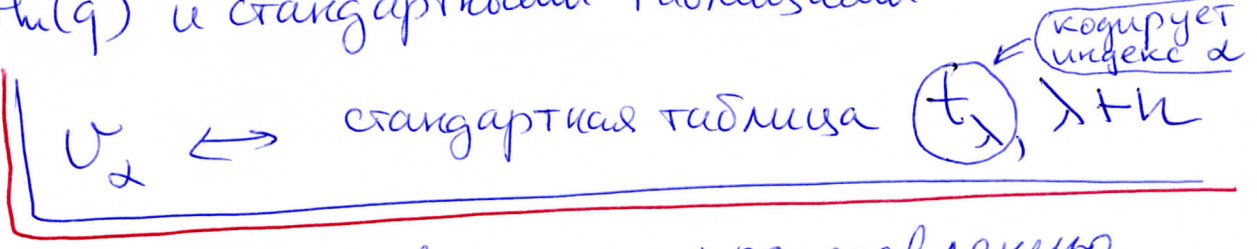 и стандартными таблицами
кодирует
индекс α
v_α ↔ стандартная таблица t_λ, λ ⊢ n